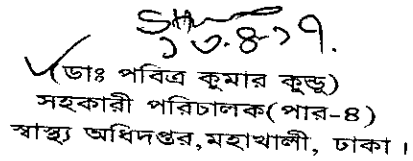 ১৩.৪.১৭.
(ডাঃ পবিত্র কুমার কুন্ডু)
সহকারী পরিচালক(পার-৪)
স্বাস্থ্য অধিদপ্তর,মহাখালী, ঢাকা।